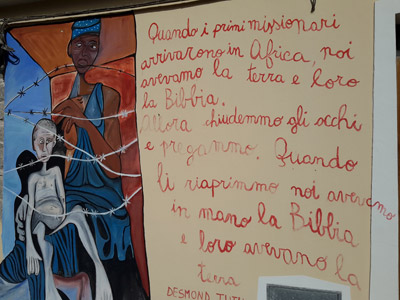 Quando i primi missionari
arrivarono in Africa, noi
avevamo la terra e loro
la Bibbia.
Allora chiudemmo gli occhi
e pregammo. Quando
li riaprimmo noi avevamo
in mano la Bibbia
e loro avevano la
terra
DESMOND TUTU